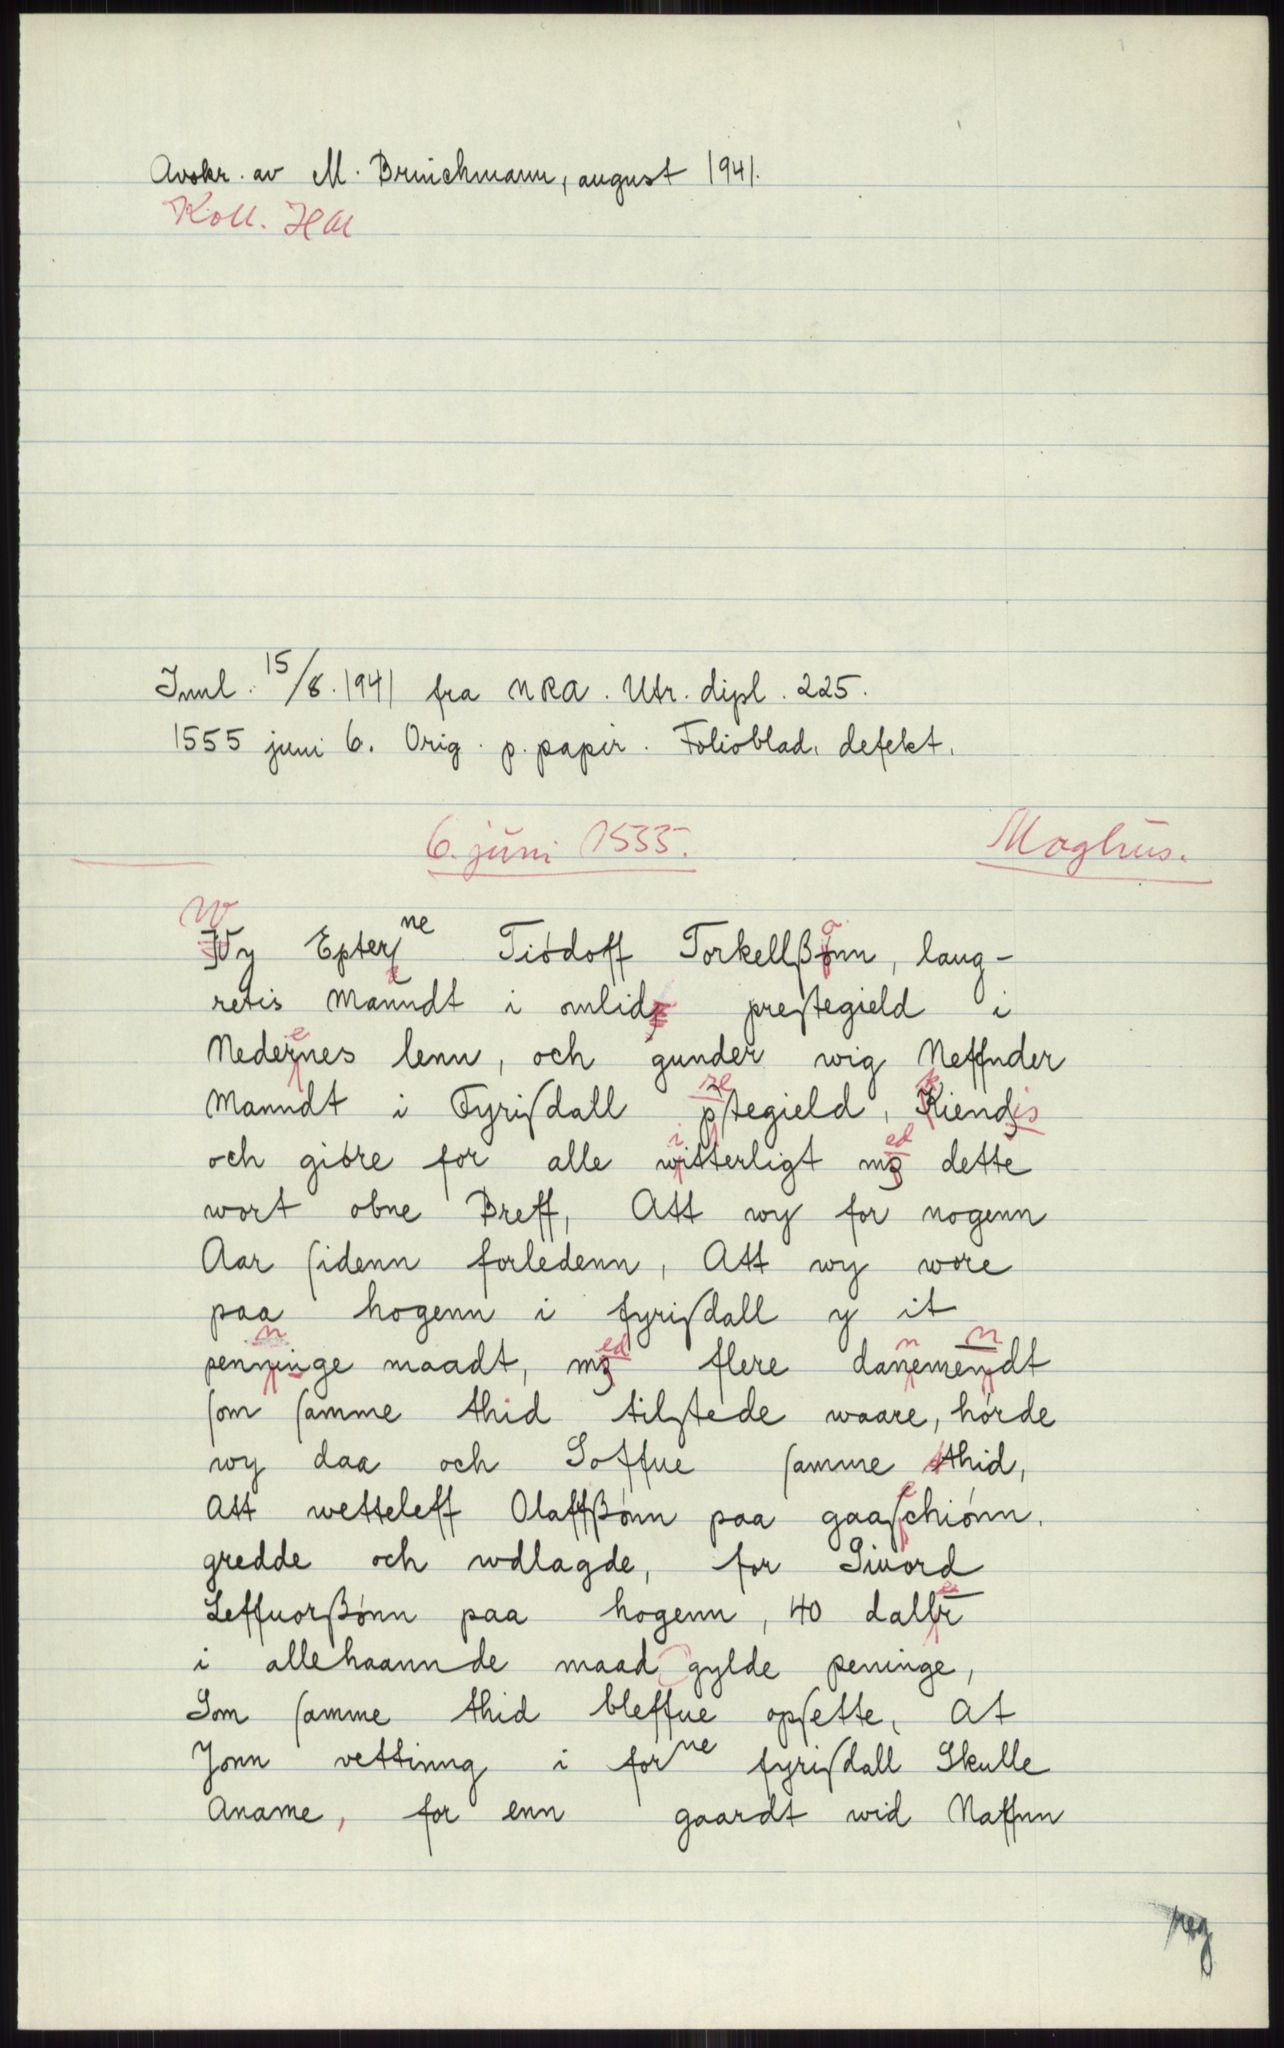 Avskr. av M. Brinchmann, august 1941.
Koll. HM
Innl. 15/8. 1941 fra NRA. Utr. dipl. 225.
1555 juni 6. Orig. p. papir. Folioblad, defekt.
6. juni 1555. Moghus.
Wy Epterſne Tiódoff Torkellßønn, laug-
retis Manndt i omlid preſtegield i
Nedernes lenn, och gunder wig Neffnder
Manndt i Fyriſdall preſtegield, Kiendis
och gióre for alle witterligt med dette
wort obne Breff, Att wy for nogenn
Aar ſidenn forledenn, Att wy wore
paa hogenn i fyriſdall y it
penninge maadt, med flere dannemenndt
ſom ſamme thid tilſtede waare, hórde
wy daa och Soffue ſamme thid,
Att wetteleff Olaffßónn paa gaaſechiónn.
gredde och wdlagde, for Siuord
Leffuorßónn paa hogenn, 40 daller
i allehaannde maad gylde peninge,
Som ſamme thid bleffue opſette, At
Jonn vettinng i forne fyriſdall Skulle
Aname, for enn gaardt wid Naffnn
reg